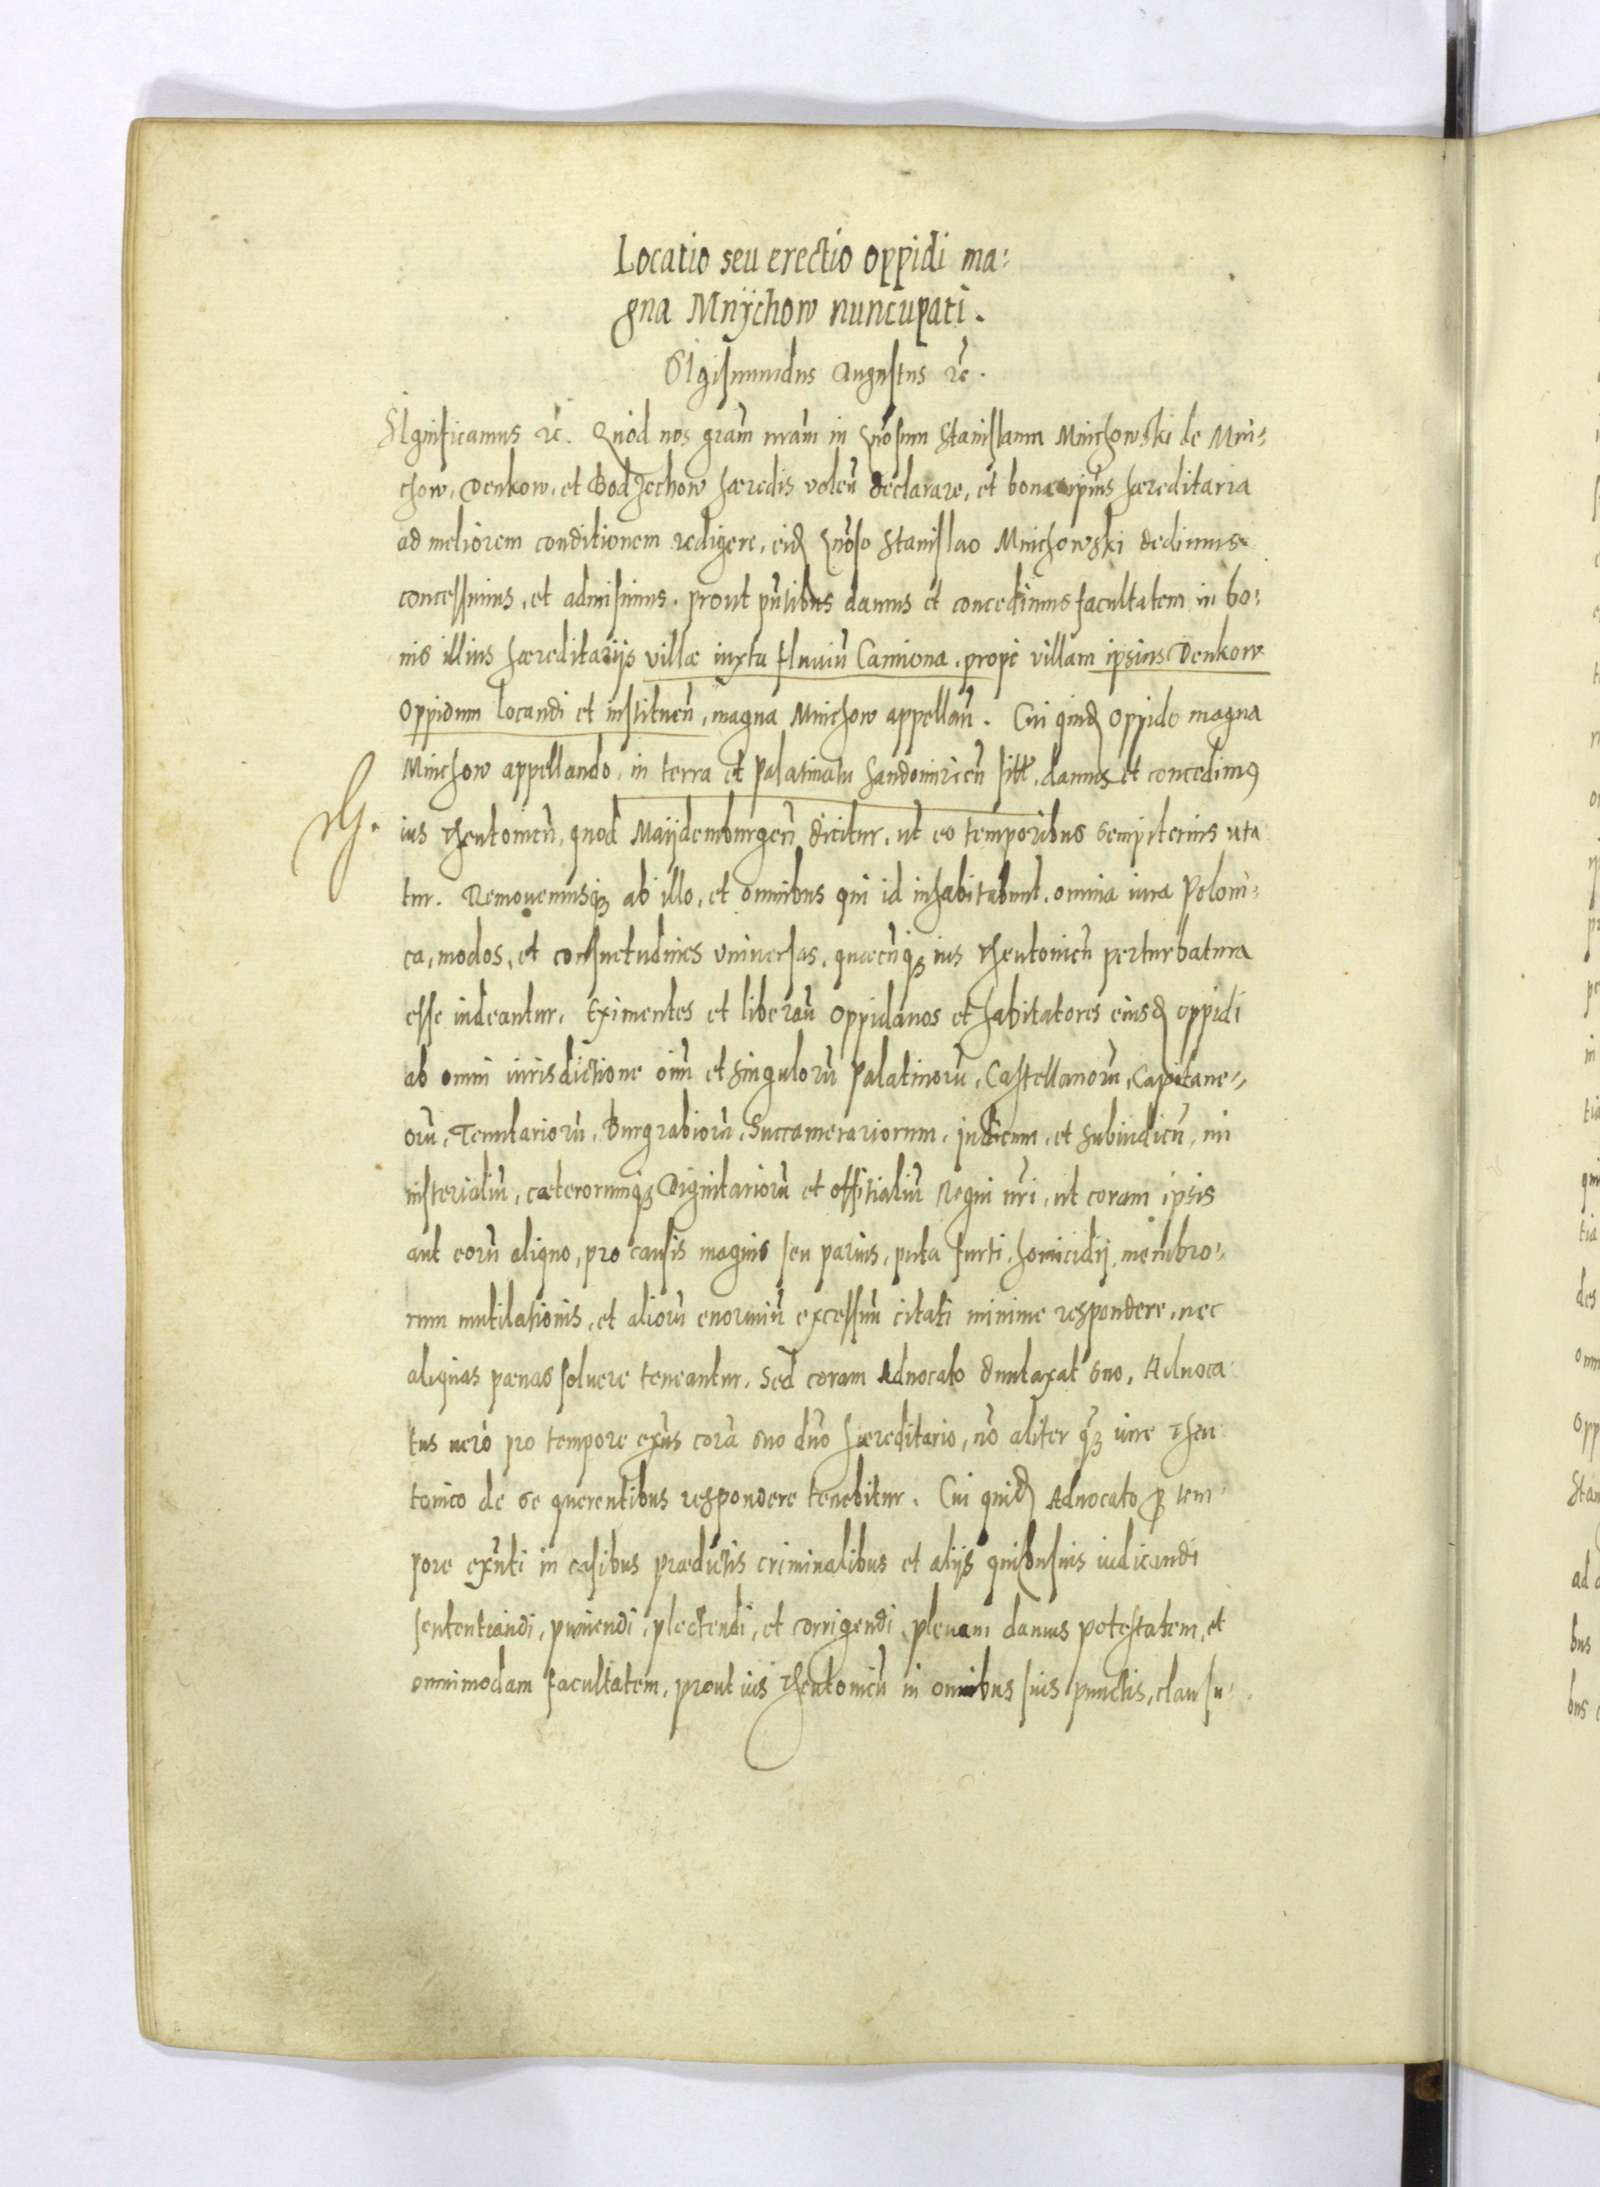 Locatio seu erectio oppidi ma:
gna Mnÿchow nuncupati.
Sigismundus Augustus rc̃.
Significamus rc̃. Quòd nos grãm nrãm in Gnõsum Stanislaum Mnichowski de Mni:
chow, Denkow, et Bodzechow hæredis voleñ declarare, et bona ipsius hæreditaria
ad meliorem conditionem redigere, eidẽ Gnõso Stanislao Mnichowski dedimus
concessimus, et admisimus. prout pñtibus damus et concedimus facultatem in bo:
nis illius hæreditarijs villæ iuxta fluuiũ Camiona, propè villam ipsius Denkow
Oppidum locandi et institueñ, magna Mnichow appellañ. Cui quidẽ oppido magna
Mnichow appellando, in terra et Palatinatu Sandomirieñ sitt. damus et concedimꝯ
ius Theutonicũ, quod Maijdemburgeñ dicitur, ut eo temporibus sempiternis uta
tur. Remouemusqꝫ ab illo, et omnibus qui id inhabitabunt, omnia iura Poloni:
ca, modos, et consuetudines vniuersas, quæcũqꝫ ius Theutonicũ perturbatura
esse uideantur. Eximentes et liberañ oppidanos et habitatores eiusdẽ oppidi
ab omni iurisdictione oim̃ et singulorũ Palatinorũ, Castellanorũ, Capitane:
orũ, Tenutariorũ, Burgrabiorũ, Succamerariorum, Judicum, et Subiudicũ, mi
nisterialiũ, cæterorumqꝫ Dignitariorũ et offitialiũ Regni nr̃i, ut coram ipsis
aut eorũ aliquo, pro causis magnis seu paruis, puta furti, homicidij, membro:
rum mutilationis, et aliorũ enormiũ excessuũ citati minime respondere, nec
aliquas pœnas soluere teneantur. Sed coram Aduocato duntaxat suo, Aduoca
tus uerò pro tempore exñs corã suo dño hæreditario, nõ aliter qꝫ iure Theu
tonico de se querentibus respondere tenebitur. Cui quidẽ Aduocato ꝓ tem
pore exñti in casibus prædictis criminalibus et alijs quibusuis iudicandi
sententiandi, puniendi, plectendi, et corrigendi plenam damus potestatem, et
omnimodam facultatem, prout ius Theutonicũ in omnibus suis punctis, clausu: